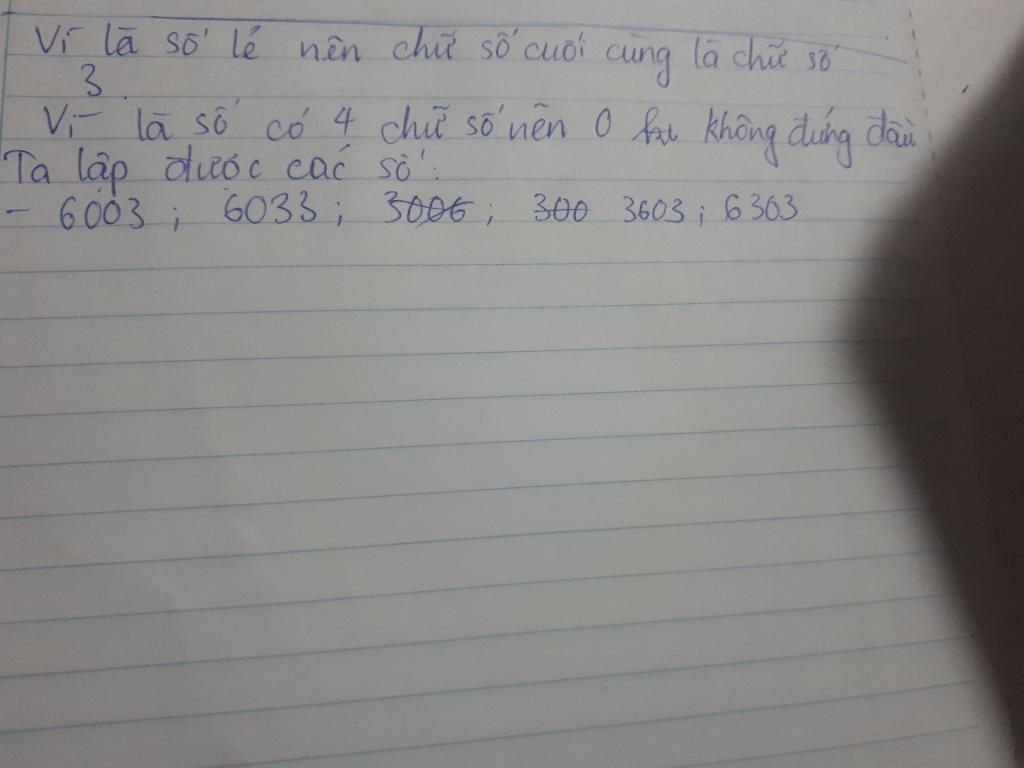 Vì là số lẻ nên chữ số cuối cùng là chữ số
3.
Vì là số có 4 chữ số nên 0 không đứng đầu
Ta lập được các số:
- 6003; 6033; 3006; 300 3603; 6303